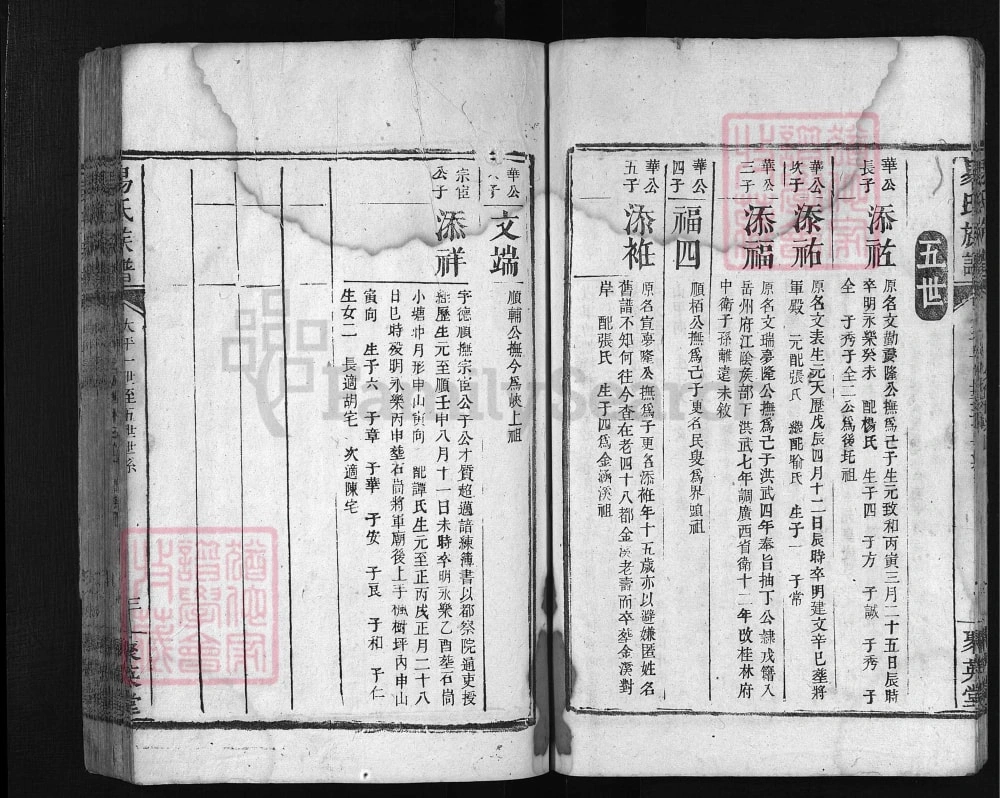 五世
華公長子 添祐
原名文勳蒙隆公撫爲己子生元致和丙寅三月二十五日辰時
卒明永樂癸未 配楊氏 生子四 于方 子誠 于秀 于
全 于秀于全二公爲後圫祖
華公次子 添祐
原名文表生元天歷戊辰四月十二日辰時卒明建文辛巳葬將
軍殿 元配張氏 繼配喻氏 生子一 子常
華公三子 添福
原名文瑞夢隆公撫爲己子洪武四年奉旨抽丁公隸戍籍入
岳州府江陰侯部下洪武七年調廣西省衛十二年改桂林府
中衛子孫離遠未敘
華公四子 福四
順栢公撫爲己子更名民叟爲界頭祖
華公五子 添祚
原名宣夢隆公撫爲子更名添祚年十五歲亦以避嫌匿姓名
舊譜不知何往今查在老四十八都金溪老壽而卒葬金溪對
岸 配張氏 生子四爲金涵溪祖
華公 子 文端
順輔公撫今爲峽上祖
宗臣公子 添祥
字德順撫宗臣公子公才質超邁諳練簿書以都察院通吏授
經歷生元至順壬申八月十一日未時卒明永樂乙酉葬石崗
小塘沖月形申山寅向 配譚氏生元至正丙戌正月二十八
日巳時歿明永樂丙申葬石崗將軍廟後上手楓樹坪內申山
寅向 生子六 子章 子華 于安 子良 子和 于仁
生女二 長適胡宅 次適陳宅
易氏族譜
太平一世至五世世系
三
聚英堂
FamilySearch